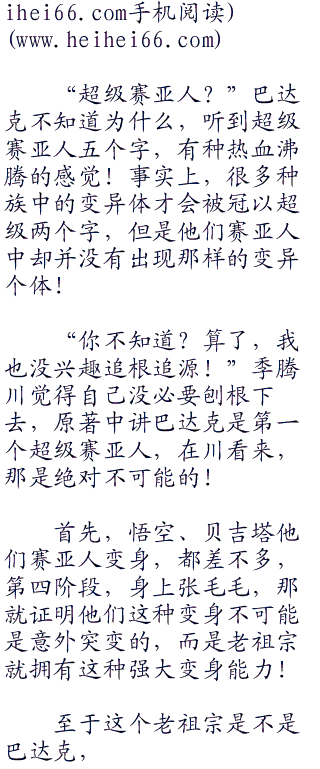 ihei66.com手机阅读)
(www.heihei66.com)
“超级赛亚人？”巴达
克不知道为什么，听到超级
赛亚人五个字，有种热血沸
腾的感觉！事实上，很多种
族中的变异体才会被冠以超
级两个字，但是他们赛亚人
中却并没有出现那样的变异
个体！
“你不知道？算了，我
也没兴趣追根追源！”季腾
川觉得自己没必要刨根下
去，原著中讲巴达克是第一
个超级赛亚人，在川看来，
那是绝对不可能的！
首先，悟空、贝吉塔他
们赛亚人变身，都差不多，
第四阶段，身上张毛毛，那
就证明他们这种变身不可能
是意外突变的，而是老祖宗
就拥有这种强大变身能力！
至于这个老祖宗是不是
巴达克，